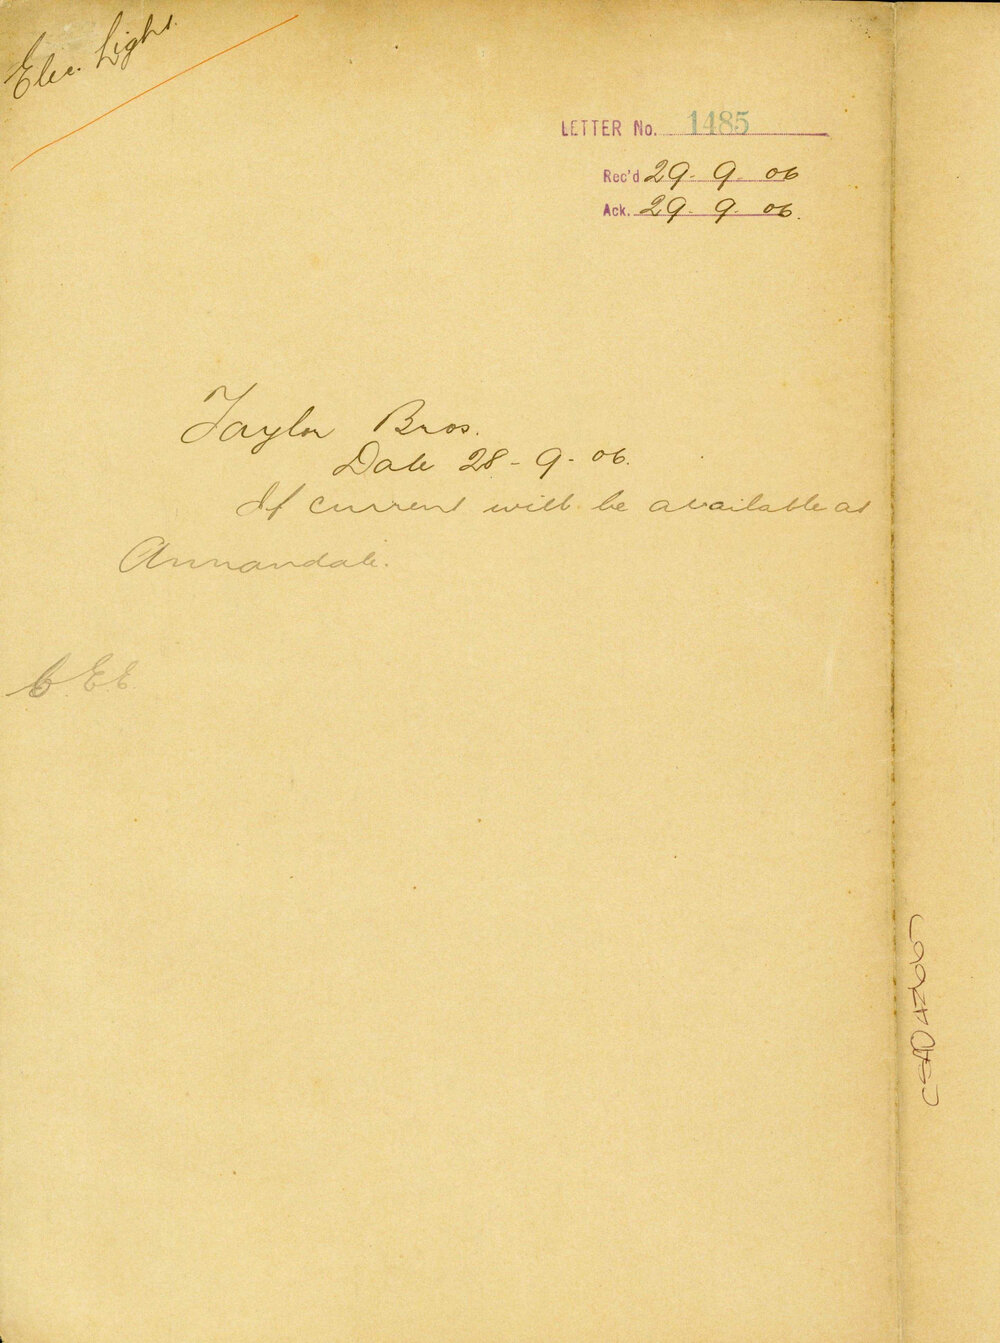 Elec. Light.
LETTER No. 1485
Rec'd 29-9-06
Ack. 29-9-06.
Taylor Bros.
Date 28-9-06.
If current will be available at
Annandale.
C.EE